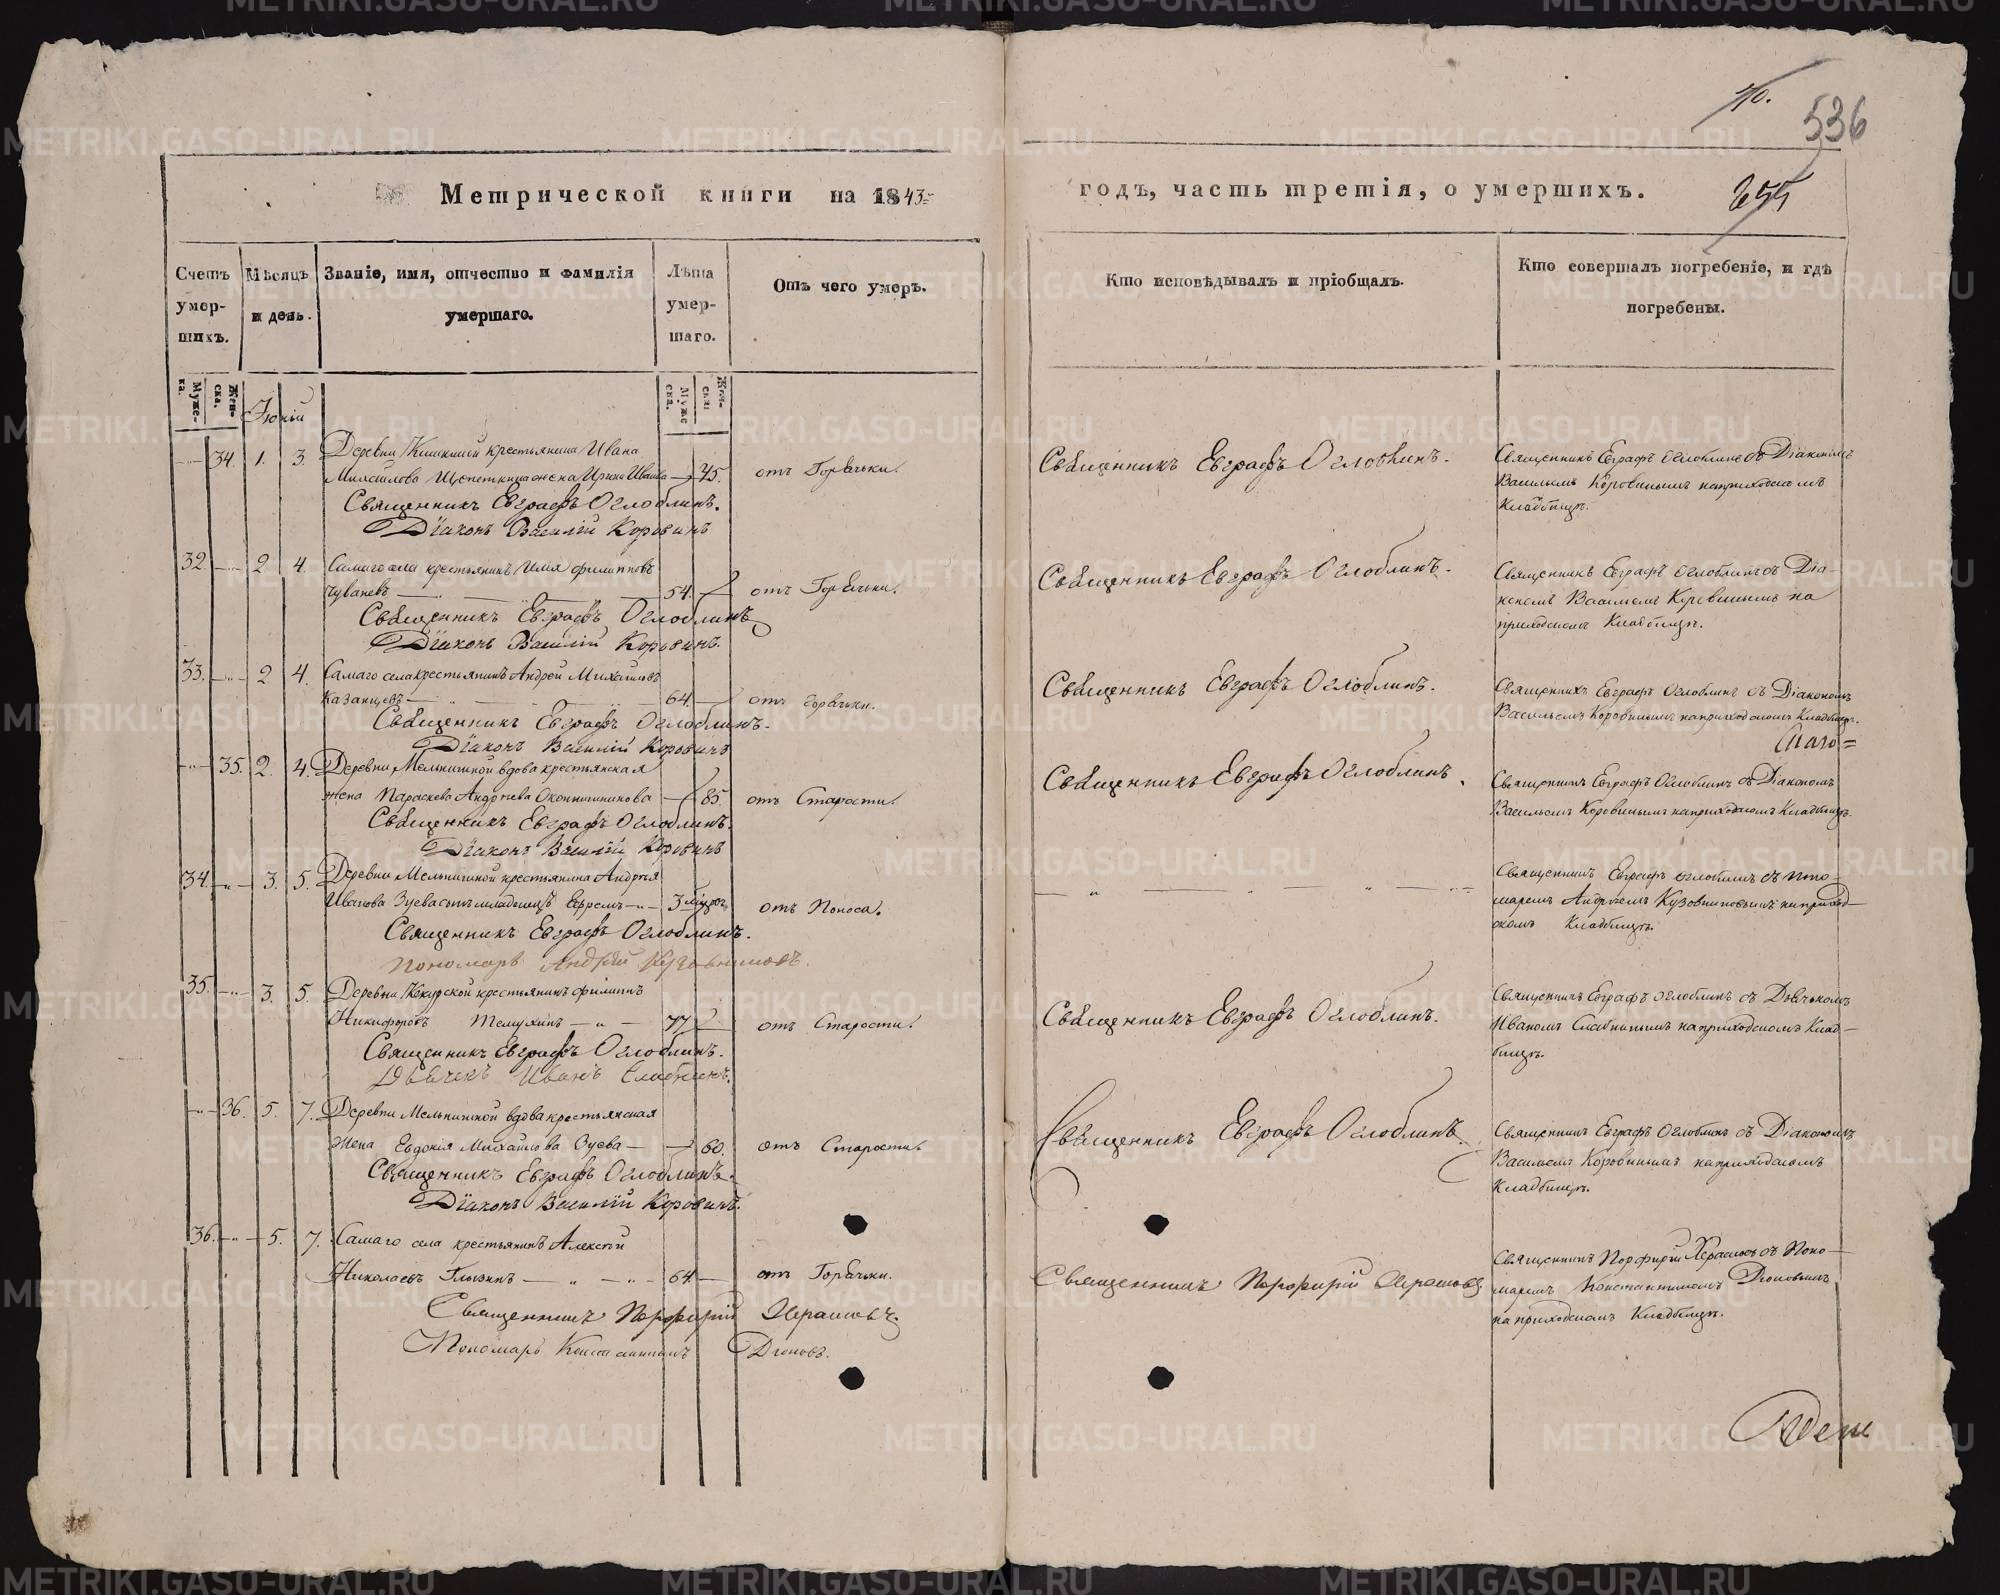 10.
536
655
Метрической книги на 1843 = годъ, часть третія, о умершихъ.
Счетъ умер-шихъ.
Мѣсяцъ и день.
Званіе, имя, отчество и фамилія умершаго.
Лѣта умер-шаго.
Отъ чего умеръ.
Кто исповѣдывалъ и пріобщалъ.
Кто совершалъ погребеніе, и гдѣ погребены.
Муже-ка.
Жен-ска.
Муже ска.
Жен-ска
Іюній
34. 1. 3. Деревни крестьянина Ивана
Михайлова Щепеткина жена Ирина Иванова 45. отъ Горячьки.
Священникъ Евграфъ Оглоблинъ.
Діаконъ Василій Коровинъ
Священникъ Евграфъ Оглоблинъ.
Священникъ Евграфъ Оглоблинъ съ Діакономъ
Васильемъ Коровинымъ на приходскомъ
Кладбищѣ.
32 2 4. Самаго села крестьянинъ Илія Филипповъ
Чуваневъ 54. отъ Горячьки.
Священникъ Евграфъ Оглоблинъ
Діаконъ Василій Коровинъ.
Священникъ Евграфъ Оглоблинъ.
Священникъ Евграфъ Оглоблинъ съ Діа-
кономъ Васильемъ Коровинымъ на
приходскомъ Кладбищѣ.
33. 2 4. Самаго села крестьянинъ Андрей Михайловъ
Казанцевъ 64. отъ горячьки.
Священникъ Евграфъ Оглоблинъ.
Діаконъ Василій Коровинъ
Священникъ Евграфъ Оглоблинъ.
Священникъ Евграфъ Оглоблинъ съ Діакономъ
Васильемъ Коровинымъ на приходскомъ Кладбищѣ.
35. 2. 4. Деревни Мельнишной вдова крестьянская
жена Параскева Андреева Оконнишникова 85. отъ Старости.
Священникъ Евграфъ Оглоблинъ.
Діаконъ Василій Коровинъ
Священникъ Евграфъ Оглоблинъ.
Священникъ Евграфъ Оглоблинъ съ Діакономъ
Васильемъ Коровинымъ на приходскомъ Кладбищѣ.
34. 3. 5. Деревни Мельнишной крестьянина Андрея
Иванова Зуева сынъ младенецъ Ефремъ 3 отъ Поноса.
Священникъ Евграфъ Оглоблинъ.
Пономарь Андрей Кузовниковъ.
Священникъ Евграфъ Оглоблинъ съ Поно-
маремъ Андреемъ Кузовниковымъ на приход-
скомъ Кладбищѣ.
35. 3. 5. Деревни крестьянинъ Филиппъ
Никифоровъ 77 отъ Старости.
Священникъ Евграфъ Оглоблинъ.
Дьячекъ Иванъ
Священникъ Евграфъ Оглоблинъ.
Священникъ Евграфъ Оглоблинъ съ Дьячькомъ
Иваномъ на приходскомъ Клад-
бищѣ.
36. 5. 7. Деревни Мельнишной вдова крестьянская
жена Евдокія Михайлова Зуева 60. отъ Старости.
Священникъ Евграфъ Оглоблинъ.
Діаконъ Василій Коровинъ.
Священникъ Евграфъ Оглоблинъ
Священникъ Евграфъ Оглоблинъ съ Діакономъ
Васильемъ Коровинымъ на приходскомъ
Кладбищѣ.
36. 5. 7. Самаго села крестьянинъ Алексѣй
Николаевъ 64 отъ Горячьки.
Священникъ Порфирій
Пономарь Константинъ
Священникъ Порфирій
Священникъ Порфирій съ Поно-
маремъ Константиномъ
на приходскомъ Кладбищѣ.
METRIKI.GASO-URAL.RU